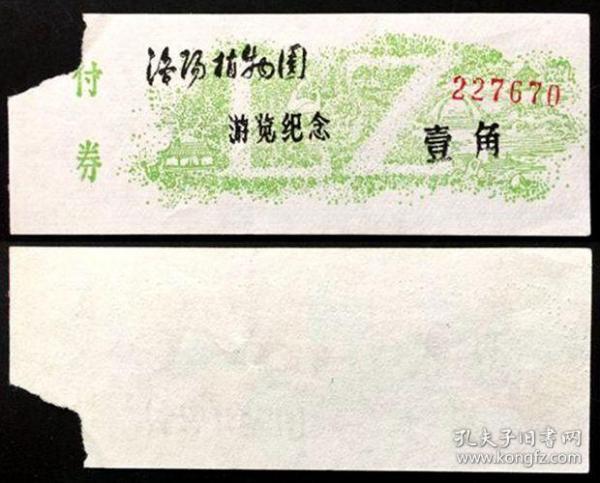 洛阳植物园
227670
游览纪念
壹角
付券
LZ
孔夫子旧书网
www.kongfz.com